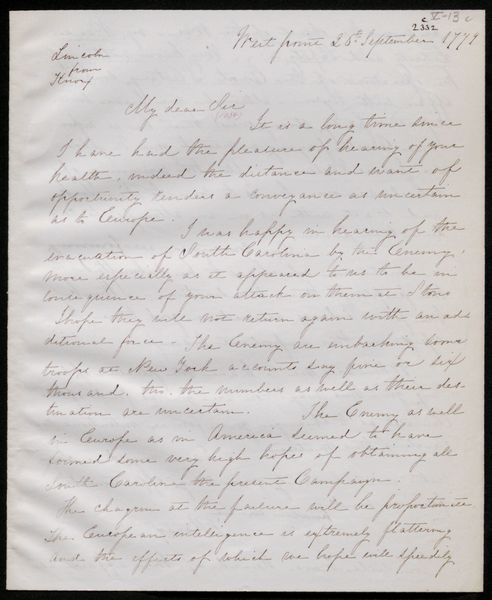 V-13 c
c
2332
West point 28th September 1779
Lincoln
from
Knox
My dear Sir
It is a long time since
I have had the pleasure of hearing of your
health, indeed the distance and want of
opportunity renders a conveyance as uncertain
as to Europe.
I was happy in hearing of the
evacuation of South Carolina by the Enemy,
more especially as it appeared to us to be in
consequence of your attack on them at Stono
I hope they will not return again with an ad-
ditional force - The Enemy are embarking some
troops at New York accounts say five or six
thousand, tho. the numbers as well as their des-
tination are uncertain. The Enemy as well
in Europe as in America seemed to have
formed some very high hopes of obtaining all
South Carolina the present Campaign.
The chagrin at the failure will be proportionate
The European intelligence is extremely flattering
and the effects of which we hope will speedily